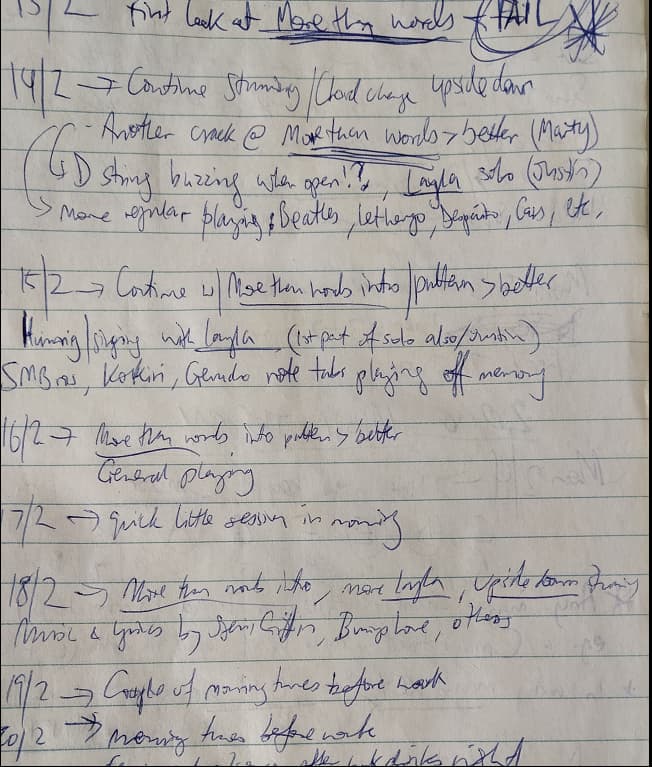 13/2 First look at More than words - FAIL
14/2 → Continue strumming/Chord change upside down
- Another crack @ More than words > better (Marty)
↳ D string buzzing when open!?, Layla solo (Justin)
→ More regular playing: Beatles, Lethergo, Despasito, Cars, etc.
15/2 → Continue w/ More than words intro/pattern > better
Humming/singing with Layla (1st part of solo also/Justin)
SMBros, Kokiri, Gerudo note tabs playing off memory
16/2 → More than words intro pattern > better
General playing
17/2 → quick little session in morning
18/2 → More than words intro, more Layla, upside down strumming
Music & lyrics by, others
19/2 → Couple of morning tunes before work
20/2 → Morning tunes before work
after work drinks night